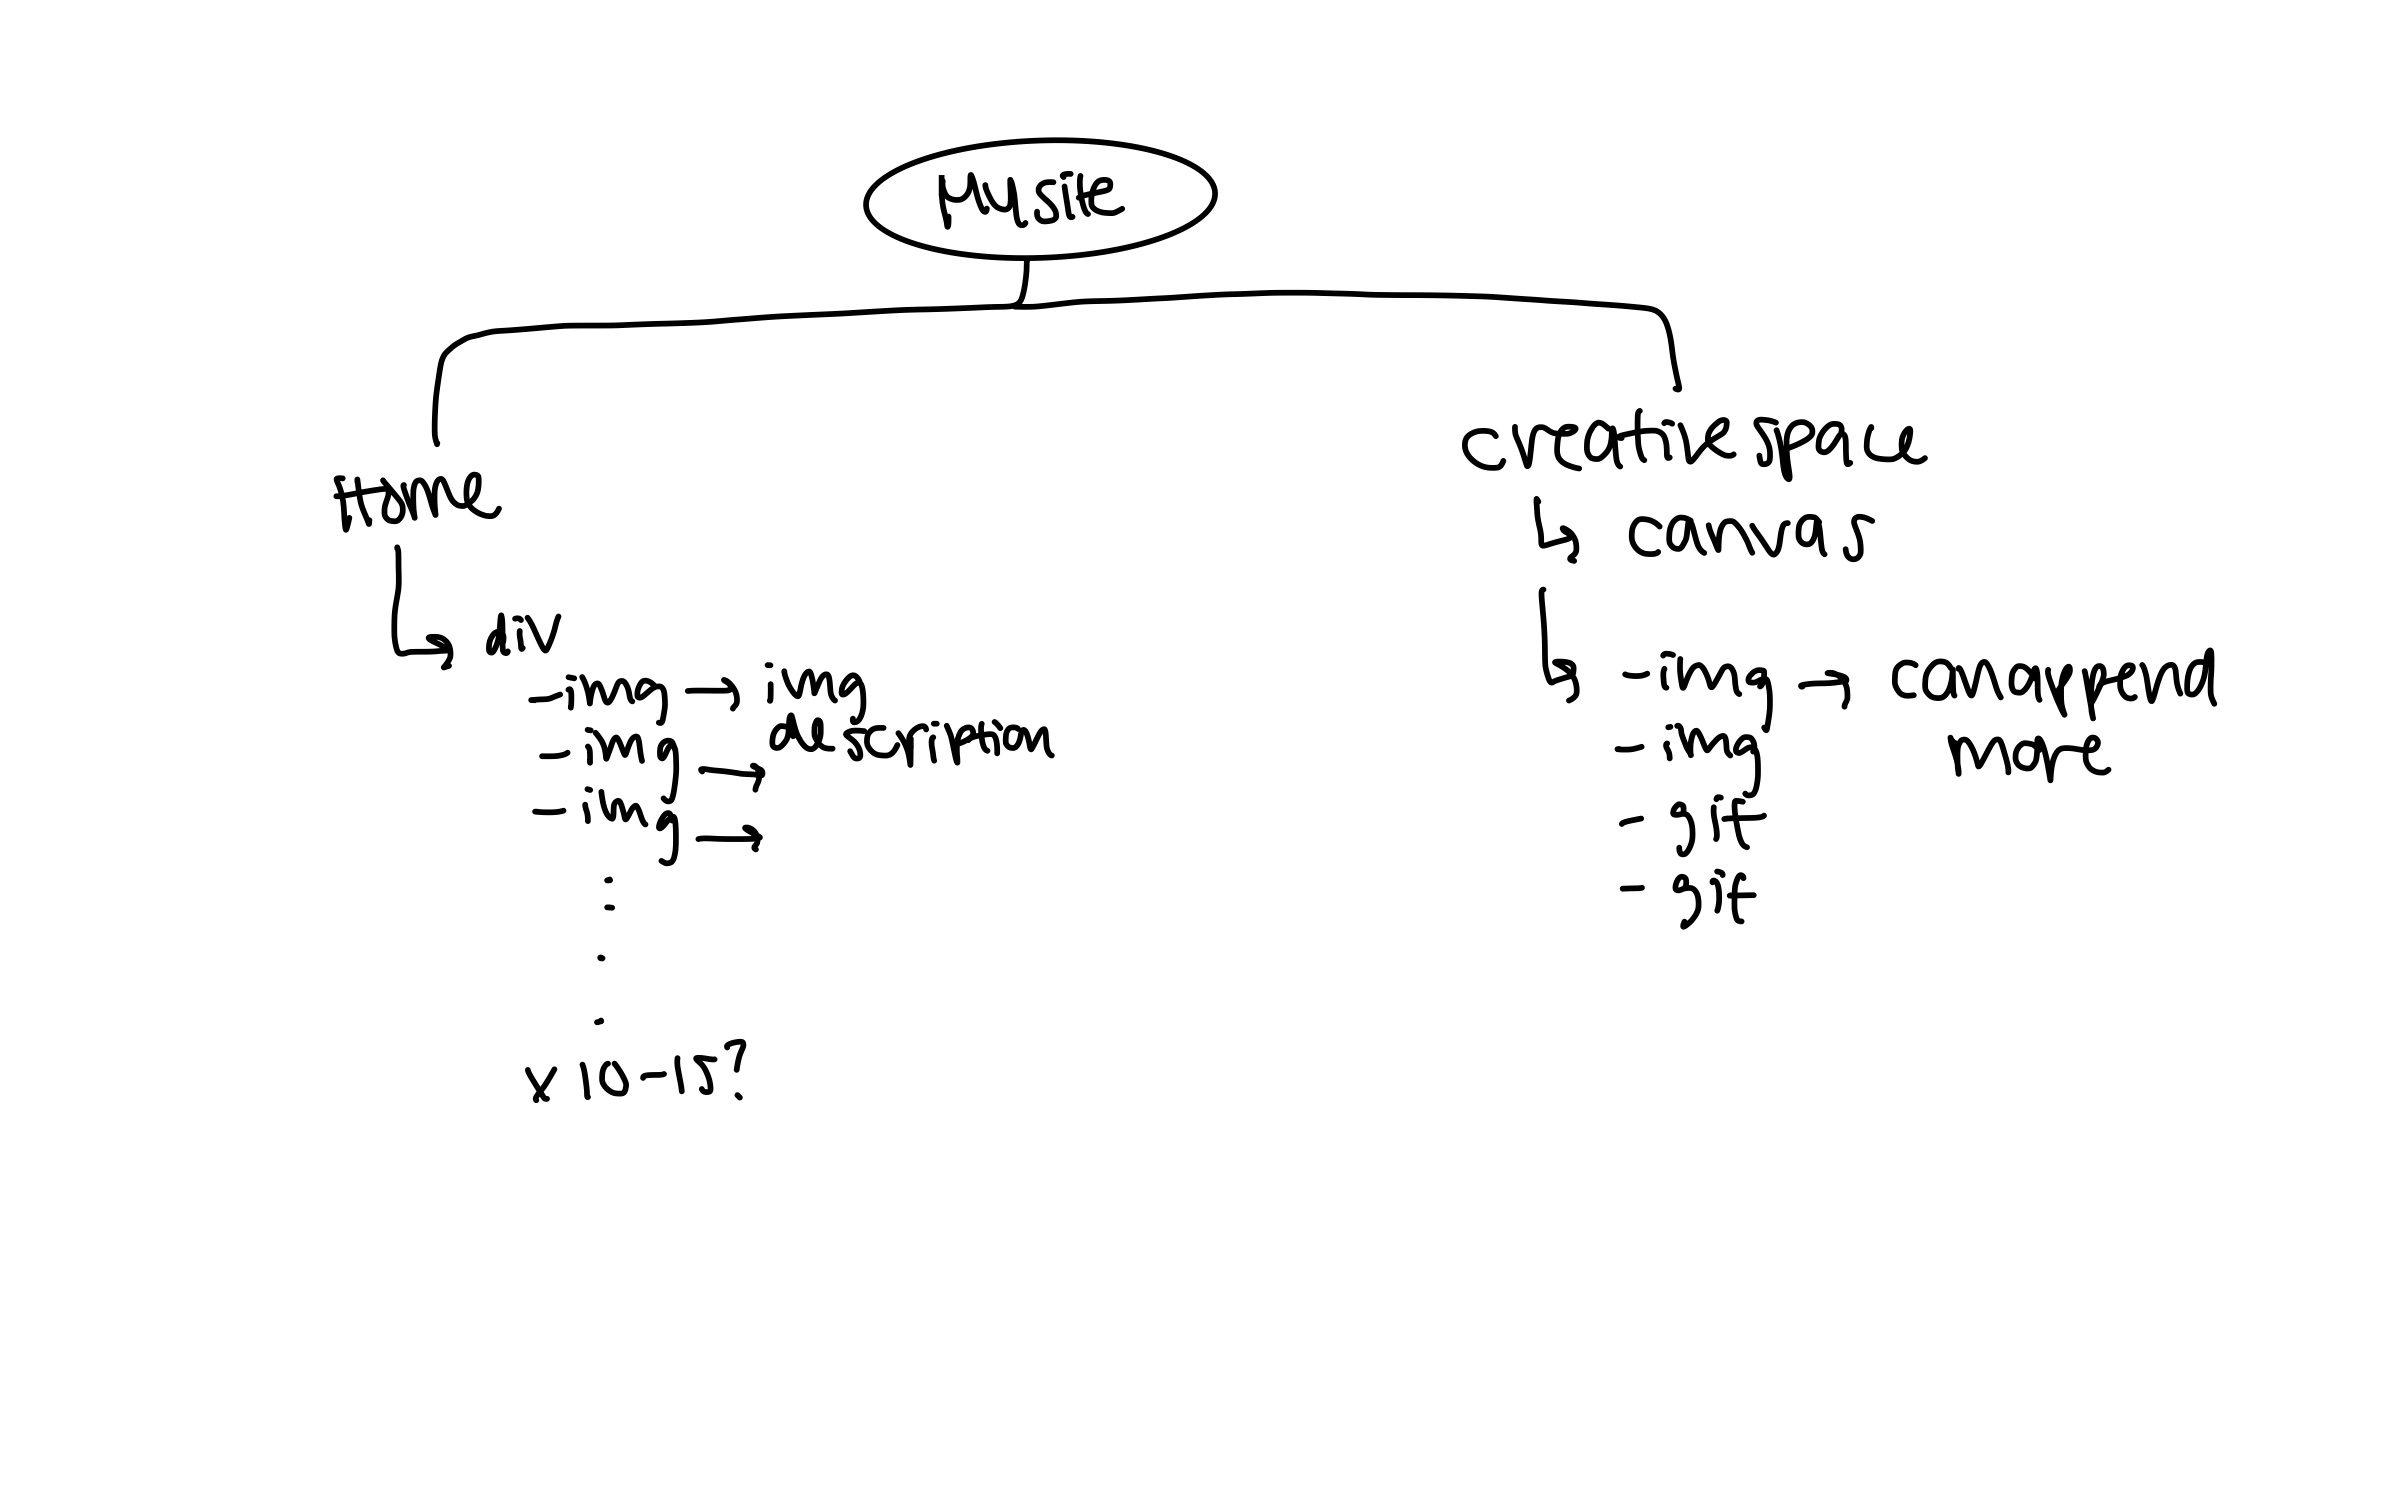 My site
Home
div
- img → img
description
- img →
- img →
x 10-15?
creative space
canvas
- img → can append
more
- img
- git
- git